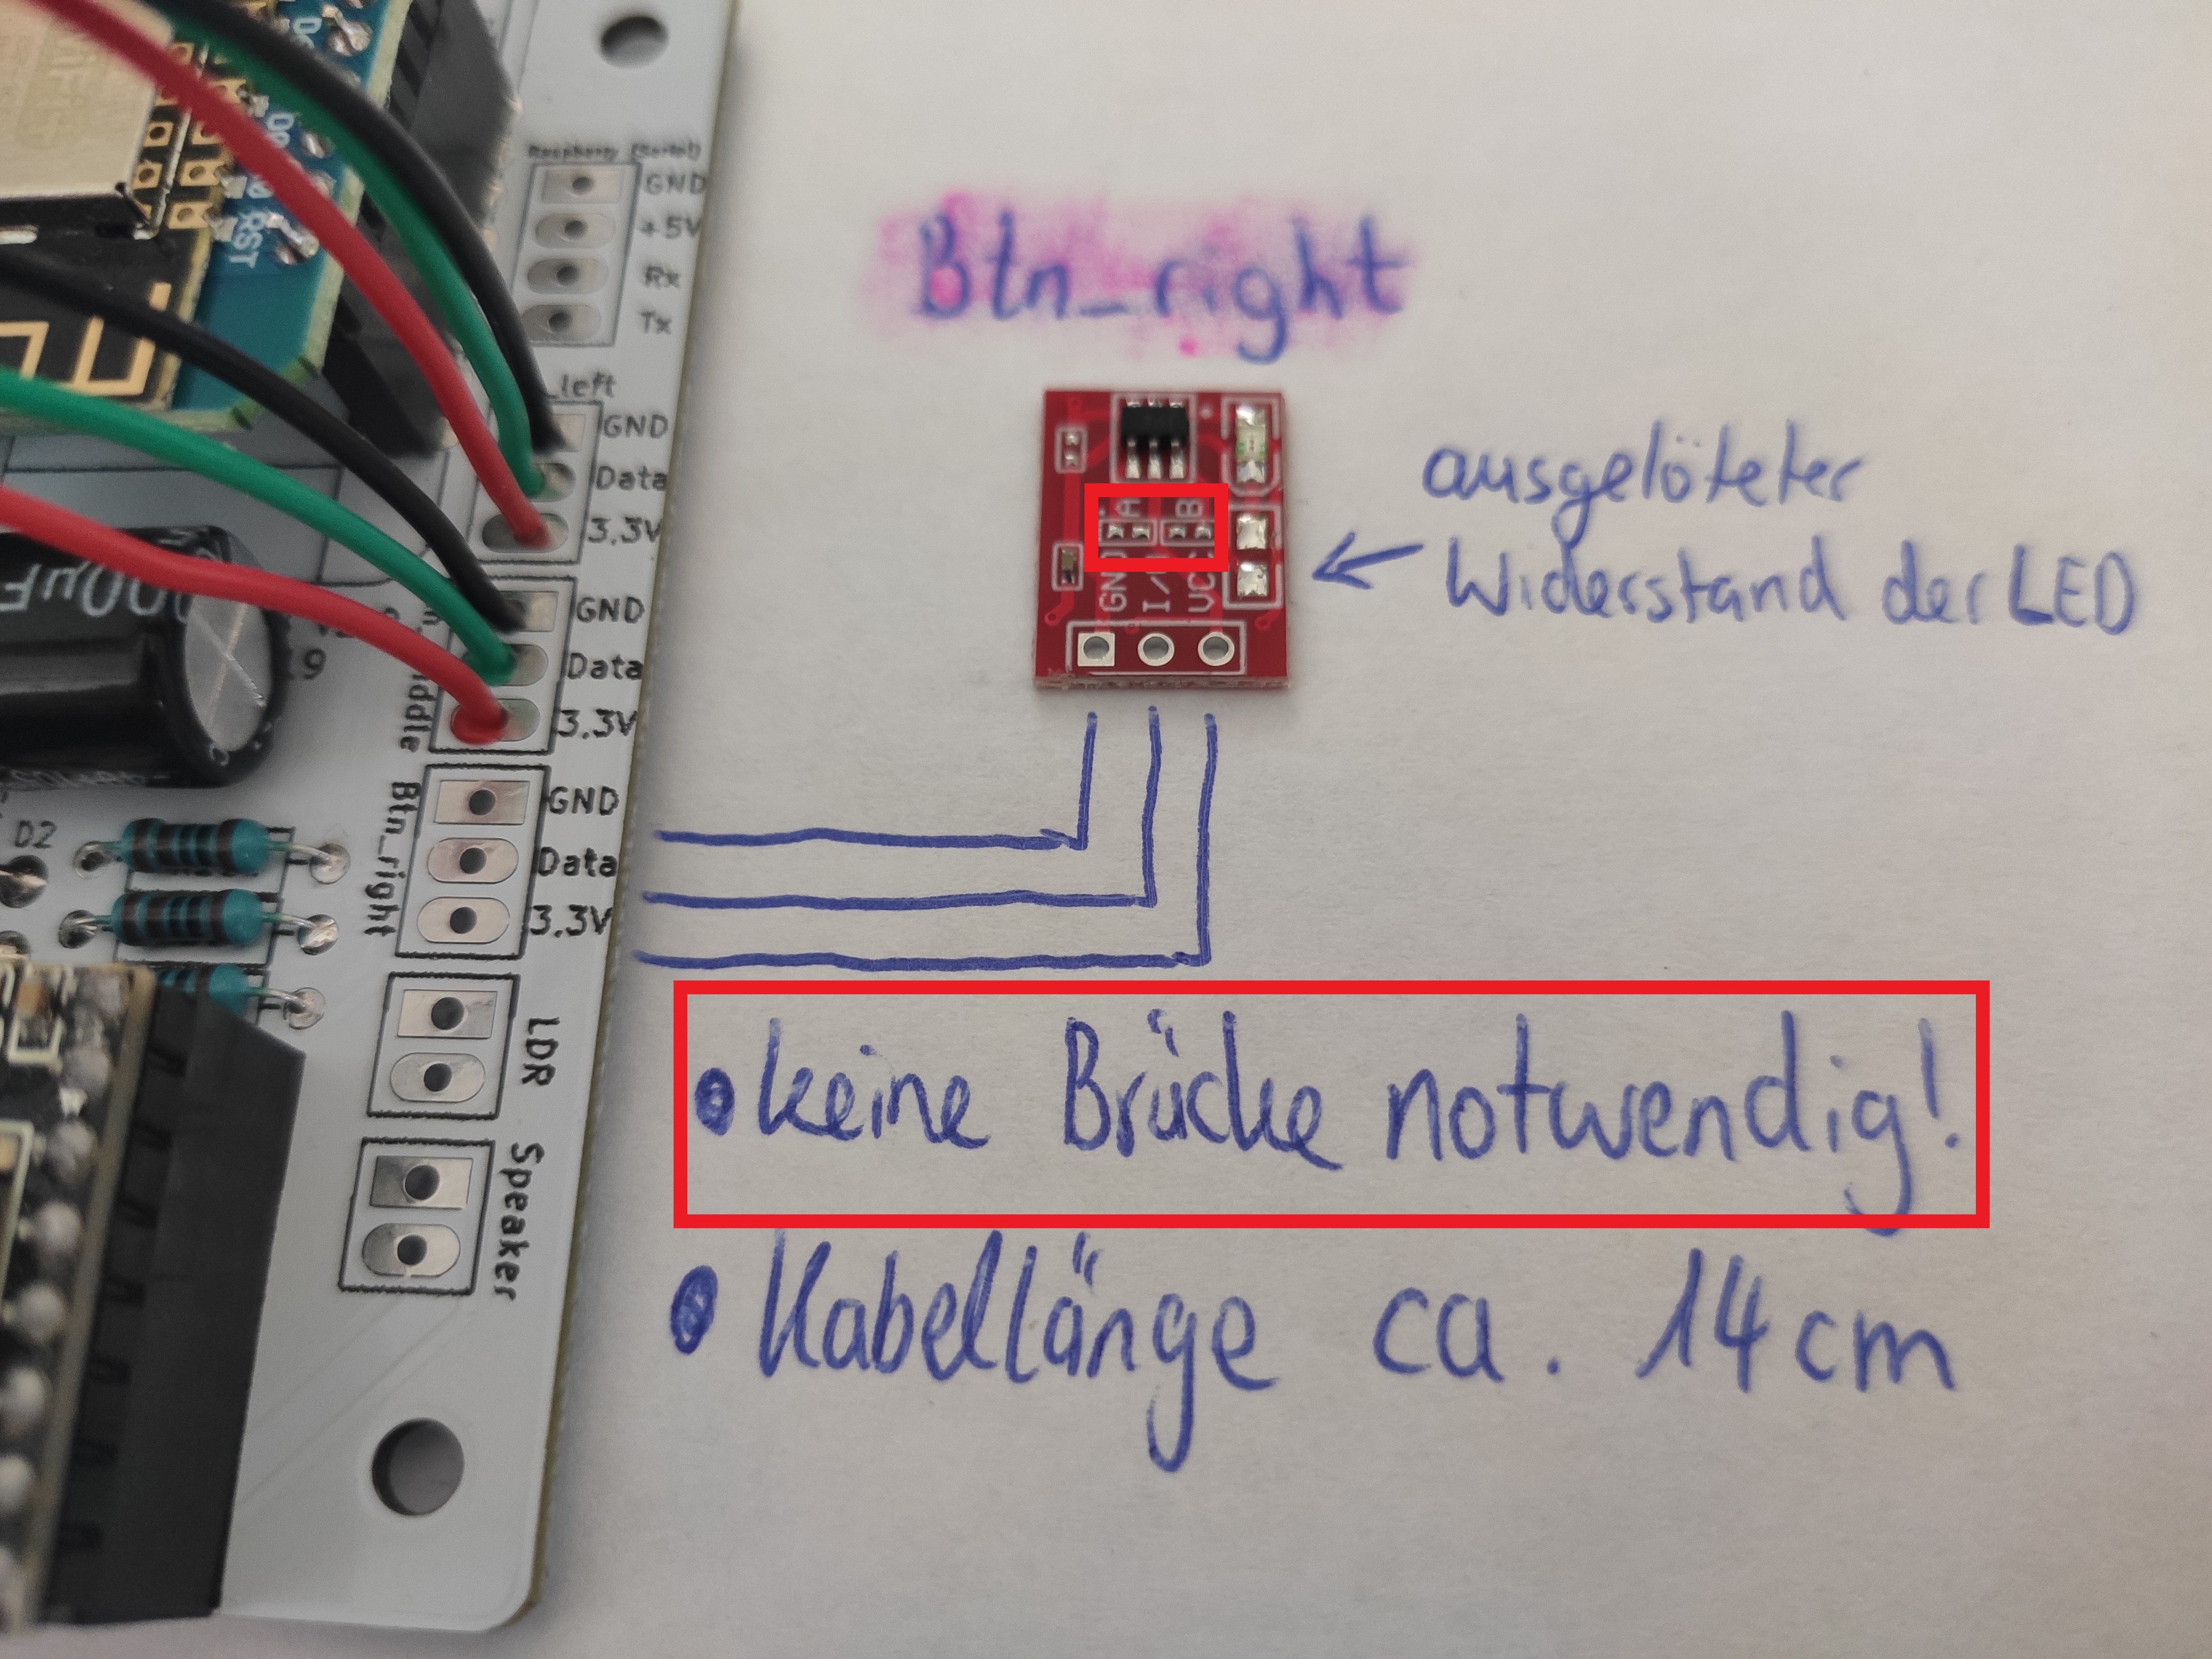 RST
Raspberry (Serial)
GND
+5V
Rx
Tx
_left
GND
Data
3.3V
GND
Data
3.3V
Btn_right
GND
Data
3.3V
D2
LDR
Speaker
Btn_right
A B
GND I/O VCC
ausgelöteter
Widerstand der LED
• keine Brücke notwendig!
• Kabellänge ca. 14cm